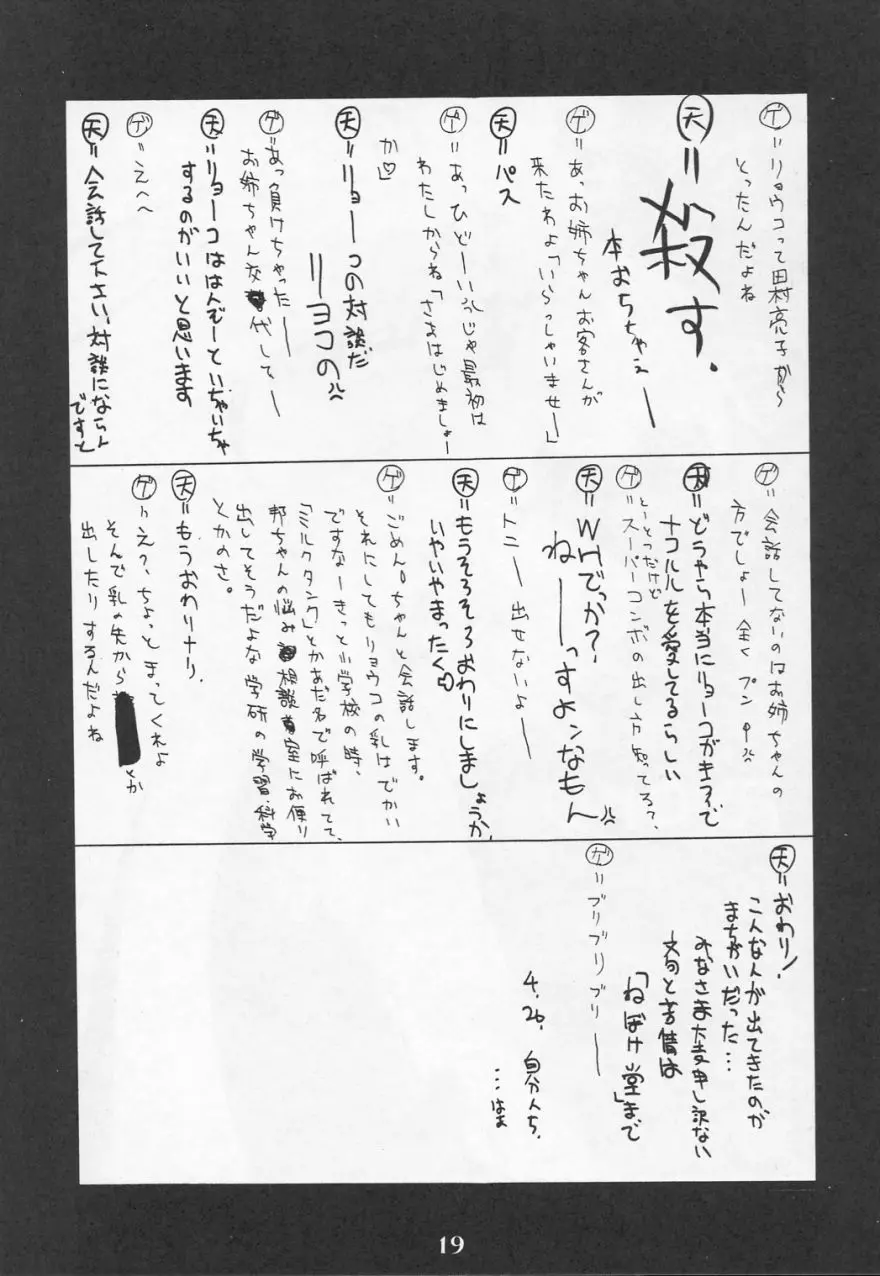 ゲ=リョウコって田村亮子から
とったんだよね
天=殺す.
本おちちゃえー
ゲ=あっお姉ちゃんお客さんが
来たわよ「いらっしゃいませー」
天=パス
ゲ=あっひどーいじゃ最初は
わたしからね「さあはじめましょー
か♡」
天=リョーコの対談だ
リーヨコの
ゲ=あっ負けちゃったー
お姉ちゃん交代してー
天=リョーコははんぞーといちゃいちゃ
するのがいいと思います
ゲ=えへへ
天=会話して下さい、対談にならんよ
ですと
ゲ=会話してないのはお姉ちゃんの
方でしょー全くプンプン
天=どうやら本当にリョーコがきらいで
ナコルルを愛してるらしい
ゲ=スーパーコンボの出し方知ってる?、
とーとつだけど
天=WHでっか?、
ねーーっすよンなもん
ゲ=トニー出せないよー
天=もうそろそろおわりにしましょうか、
いやいやまったく♡
ゲ=ごめん。ちゃんと会話します。
それにしてもリョウコの乳はでかい
ですなーきっと小学校の時、
「ミルクタンク」とかあだ名で呼ばれてて、
邦ちゃんの悩み相談室にお便り
出してそうだよな学研の学習・科学
とかのさ。
天=もうおわりナリ.
ゲ=え?、ちょっとまってくれよ
そんで乳の先から とか
出したりするんだよね
天=おわり!
こんな人が出てきたのが
まちがいだった…
みなさま大変申し訳ない
文句と苦情は
「ねぼけ堂」まで
ゲ=ブリブリブリー
4.26. 自分んち.
…はぁ
19